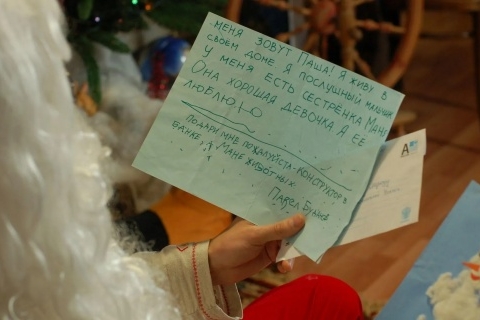 МЕНЯ ЗОВУТ ПАША! Я ЖИВУ В
СВОЕМ ДОМЕ Я ПОСЛУШНЫЙ МАЛЬЧИК
У МЕНЯ ЕСТЬ СЕСТРЁНКА МАНЯ
ОНА ХОРОШАЯ ДЕВОЧКА Я ЕЕ
ЛЮБЛЮ
ПОДАРИ МНЕ ПОЖАЛУЙСТА КОНСТРУКТОР В
БАНКЕ, А МАНЕ ЖИВОТНЫХ
ПАВЕЛ
А